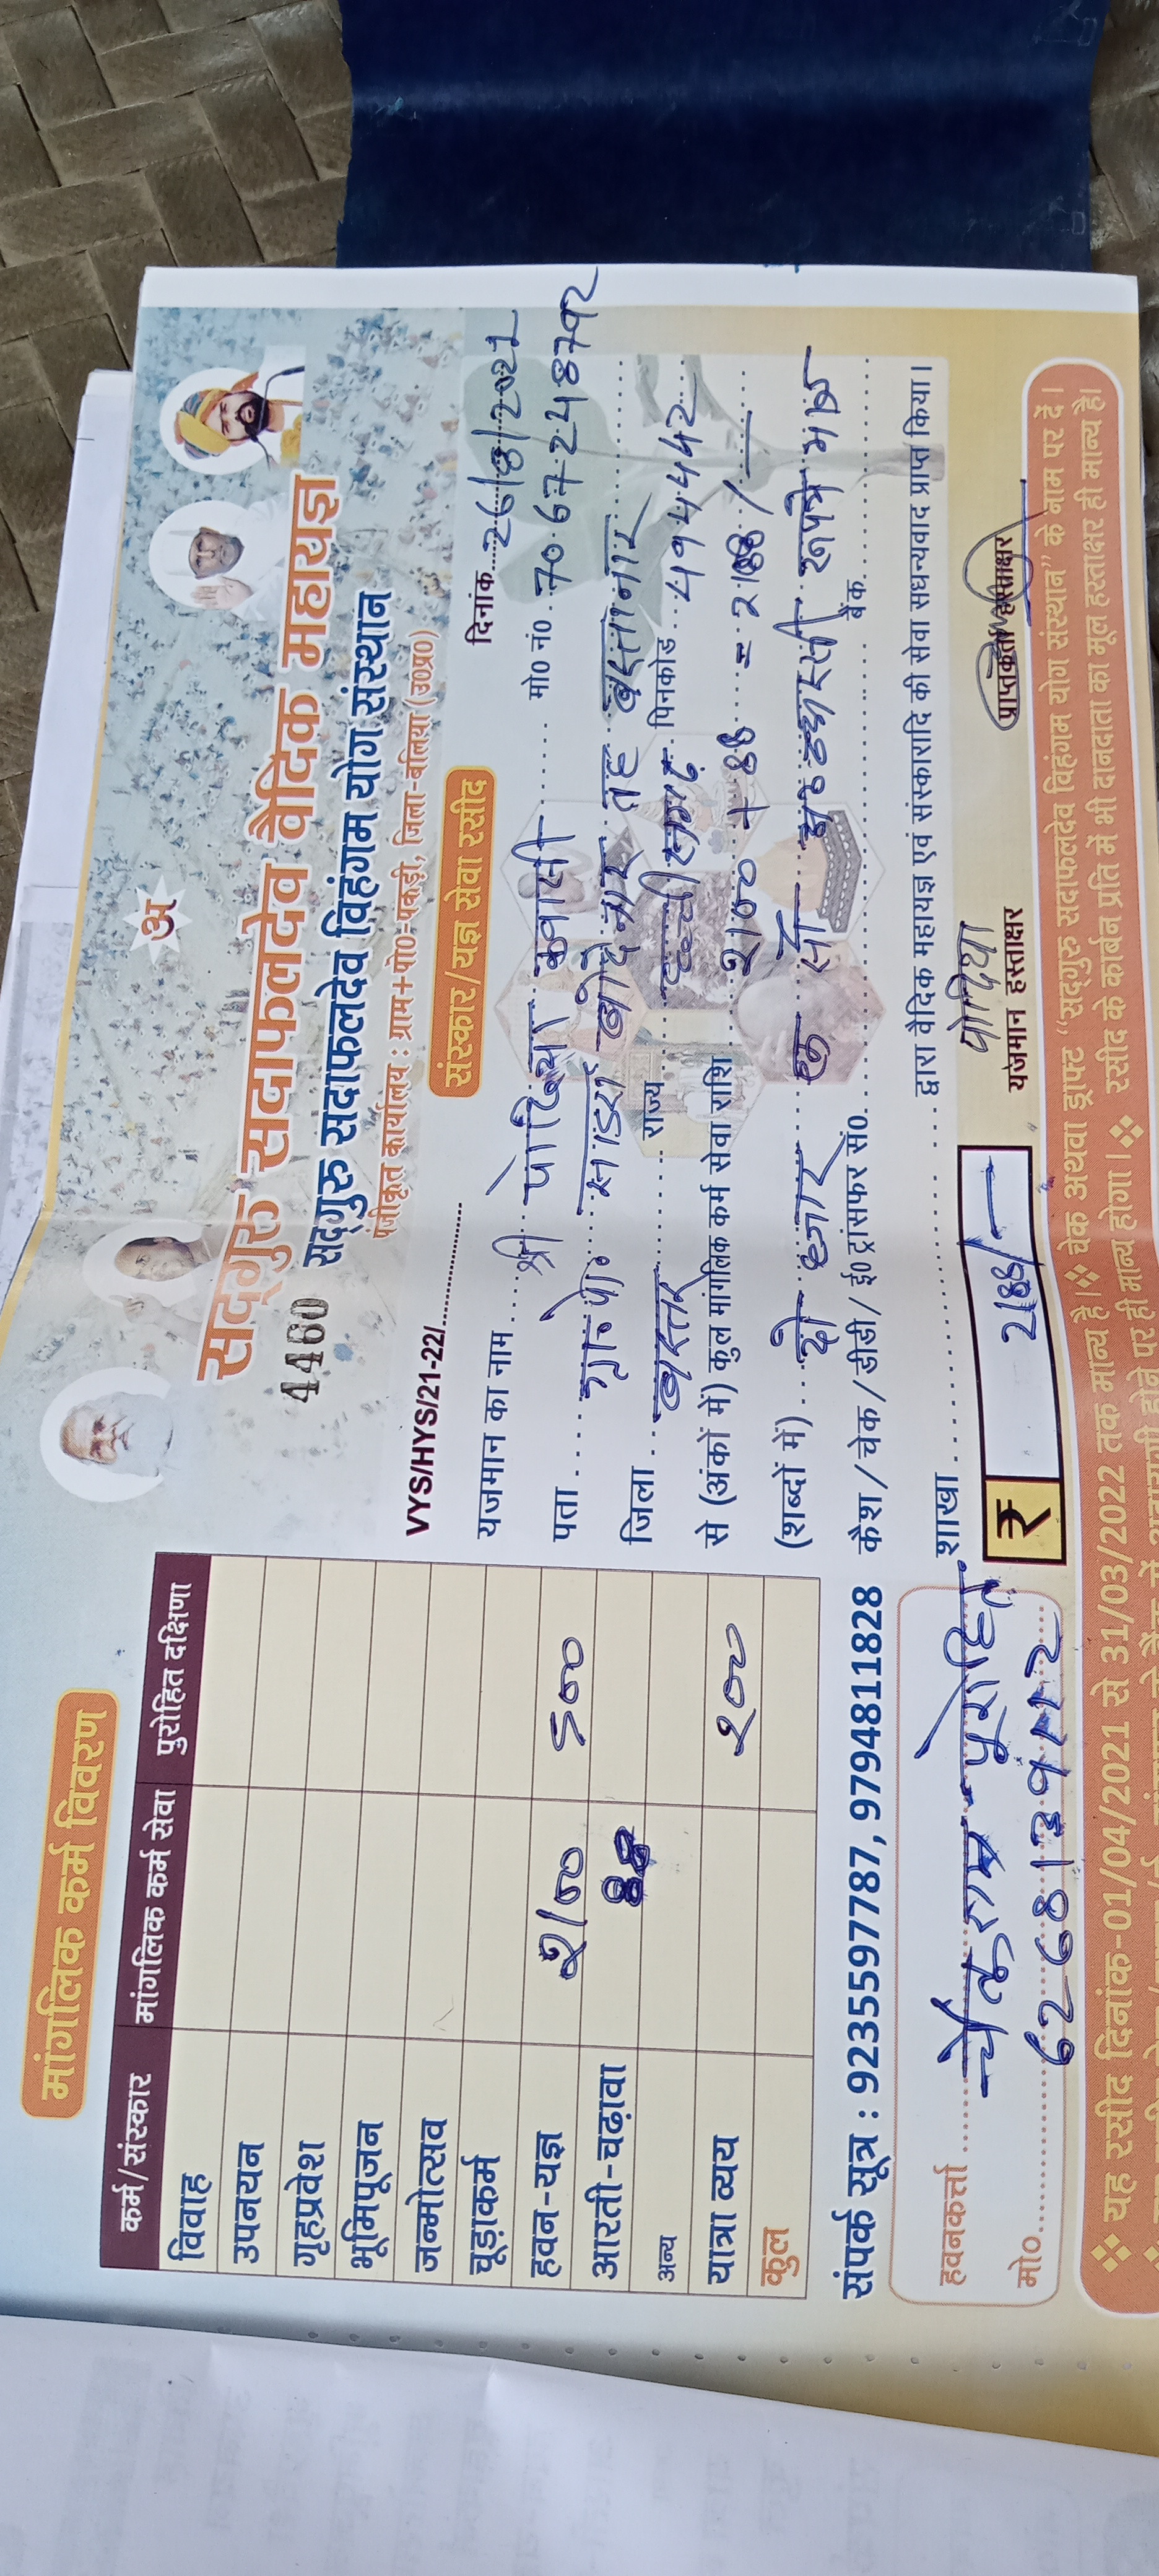 मांगलिक कर्म विवरण
कर्म/संस्कार मांगलिक कर्म सेवा पुरोहित दक्षिणा
विवाह
उपनयन
गृहप्रवेश
भूमिपूजन
जन्मोत्सव
चूड़ाकर्म
हवन-यज्ञ 2100 500
आरती-चढ़ावा
अन्य
यात्रा व्यय 200
कुल
संपर्क सूत्र : 9235597787, 9794811828
हवनकर्त्ता पुरोहित
मो०
अ
सद्गुरु सदाफलदेव वैदिक महायज्ञ
4460 सद्गुरु सदाफलदेव विहंगम योग संस्थान
पंजीकृत कार्यालय : ग्राम+पो०-पकड़ी, जिला-बलिया (उ०प्र०)
संस्कार/यज्ञ सेवा रसीद
VYS/HYS/21-22/ दिनांक 26/8/2021
यजमान का नाम श्री मो० नं०
पता ग्राम पो०
जिला बस्तर राज्य पिनकोड 494442
से (अंकों में) कुल मांगलिक कर्म सेवा राशि 2100 + 88 = 2188/
(शब्दों में) दो हजार एक सौ रुपये मात्र
कैश/चेक/डीडी/ई० ट्रांसफर सं० बैंक
शाखा द्वारा वैदिक महायज्ञ एवं संस्कारादि की सेवा सधन्यवाद प्राप्त किया।
₹ 2188/
यजमान हस्ताक्षर प्राप्तकर्ता हस्ताक्षर
❖ यह रसीद दिनांक-01/04/2021 से 31/03/2022 तक मान्य है। ❖ चेक अथवा ड्राफ्ट "सद्गुरु सदाफलदेव विहंगम योग संस्थान" के नाम पर दें।
होने पर ही मान्य होगा। ❖ रसीद के कार्बन प्रति में भी दानदाता का मूल हस्ताक्षर ही मान्य है।